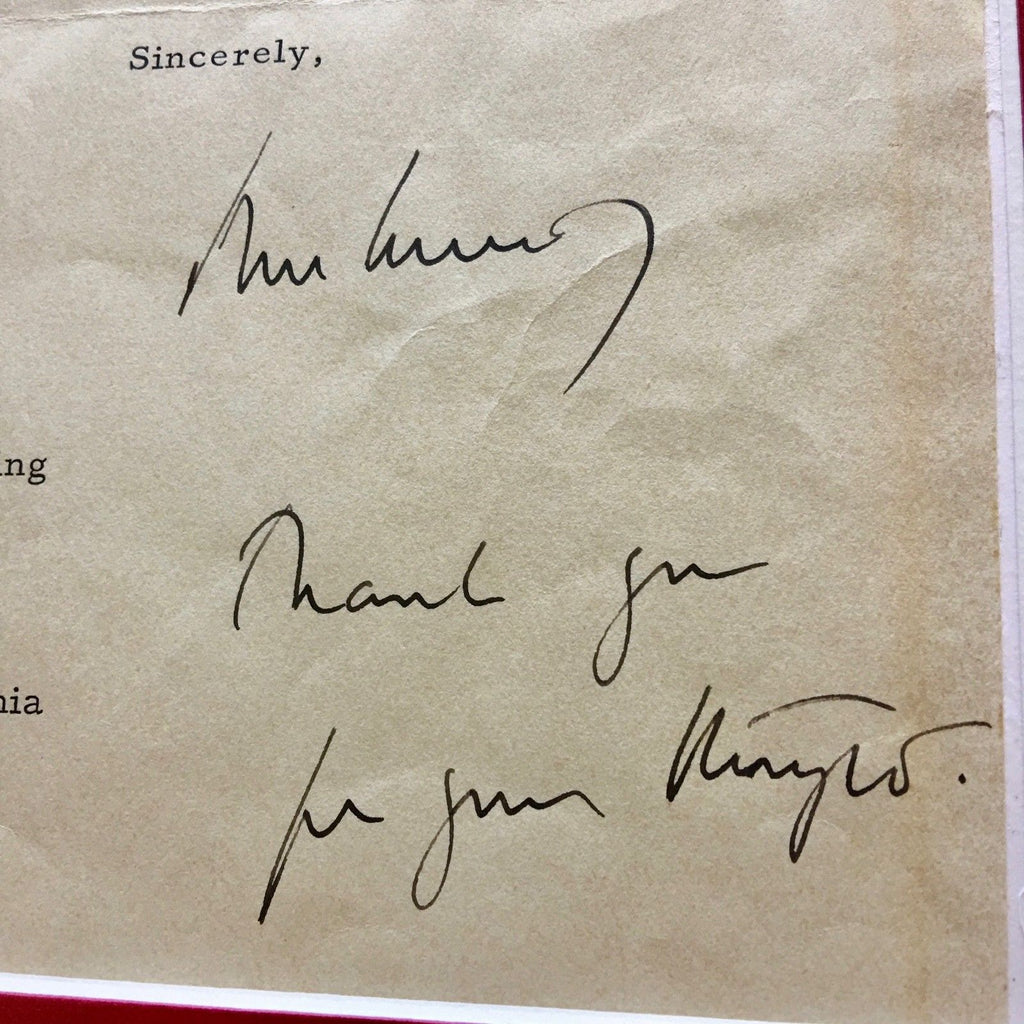 Sincerely,
ing
Thank you
nia
for your thoughts.